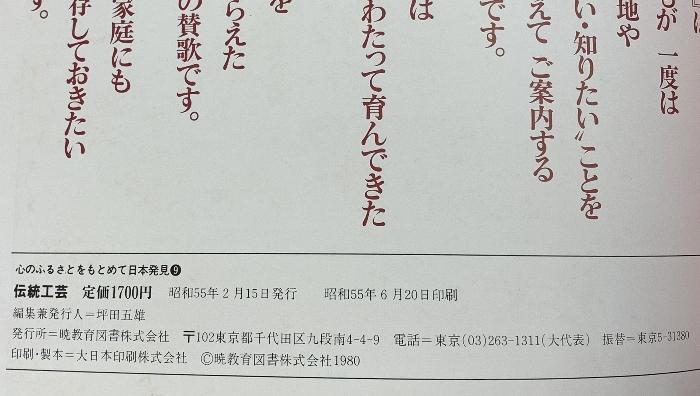 が 一度は
地や
い・知りたい〟ことを
えて ご案内する
です。
は
わたって育んできた
を
らえた
の賛歌です。
家庭にも
存しておきたい
す。
心のふるさとをもとめて日本発見❾
伝統工芸 定価1700円 昭和55年2月15日発行 昭和55年6月20日印刷
編集兼発行人=坪田五雄
発行所=暁教育図書株式会社 〒102東京都千代田区九段南4-4-9 電話=東京(03)263-1311(大代表) 振替=東京5-31380
印刷・製本=大日本印刷株式会社 ©暁教育図書株式会社1980